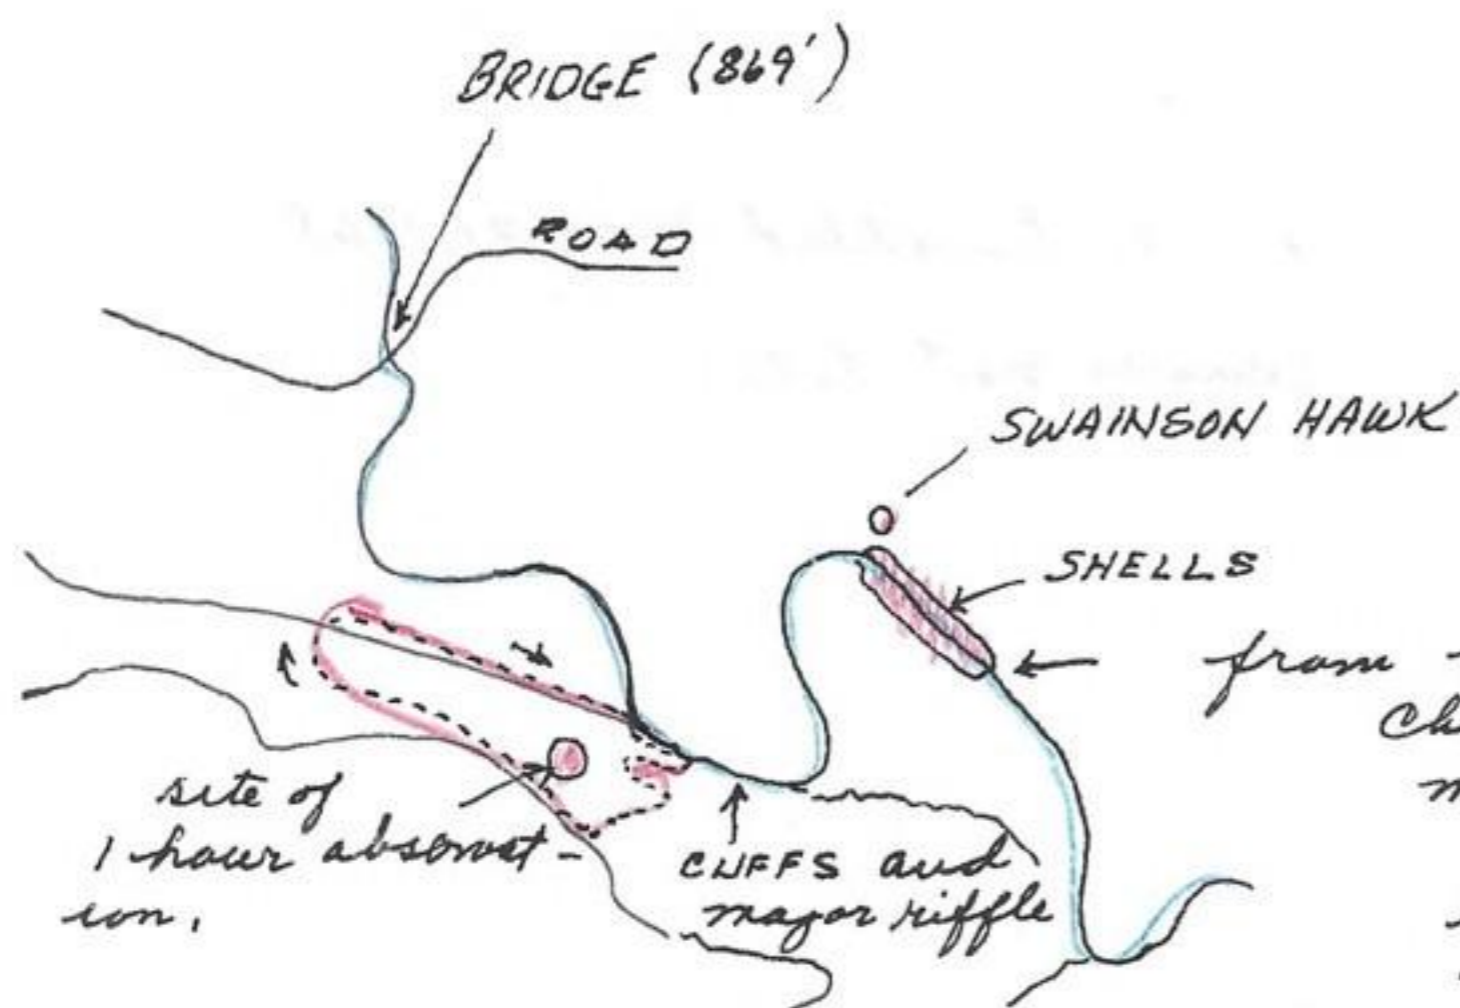 BRIDGE (869')
ROAD
SWAINSON HAWK
SHELLS
from
site of
1 hour observat-
ion.
CLIFFS and
major riffle